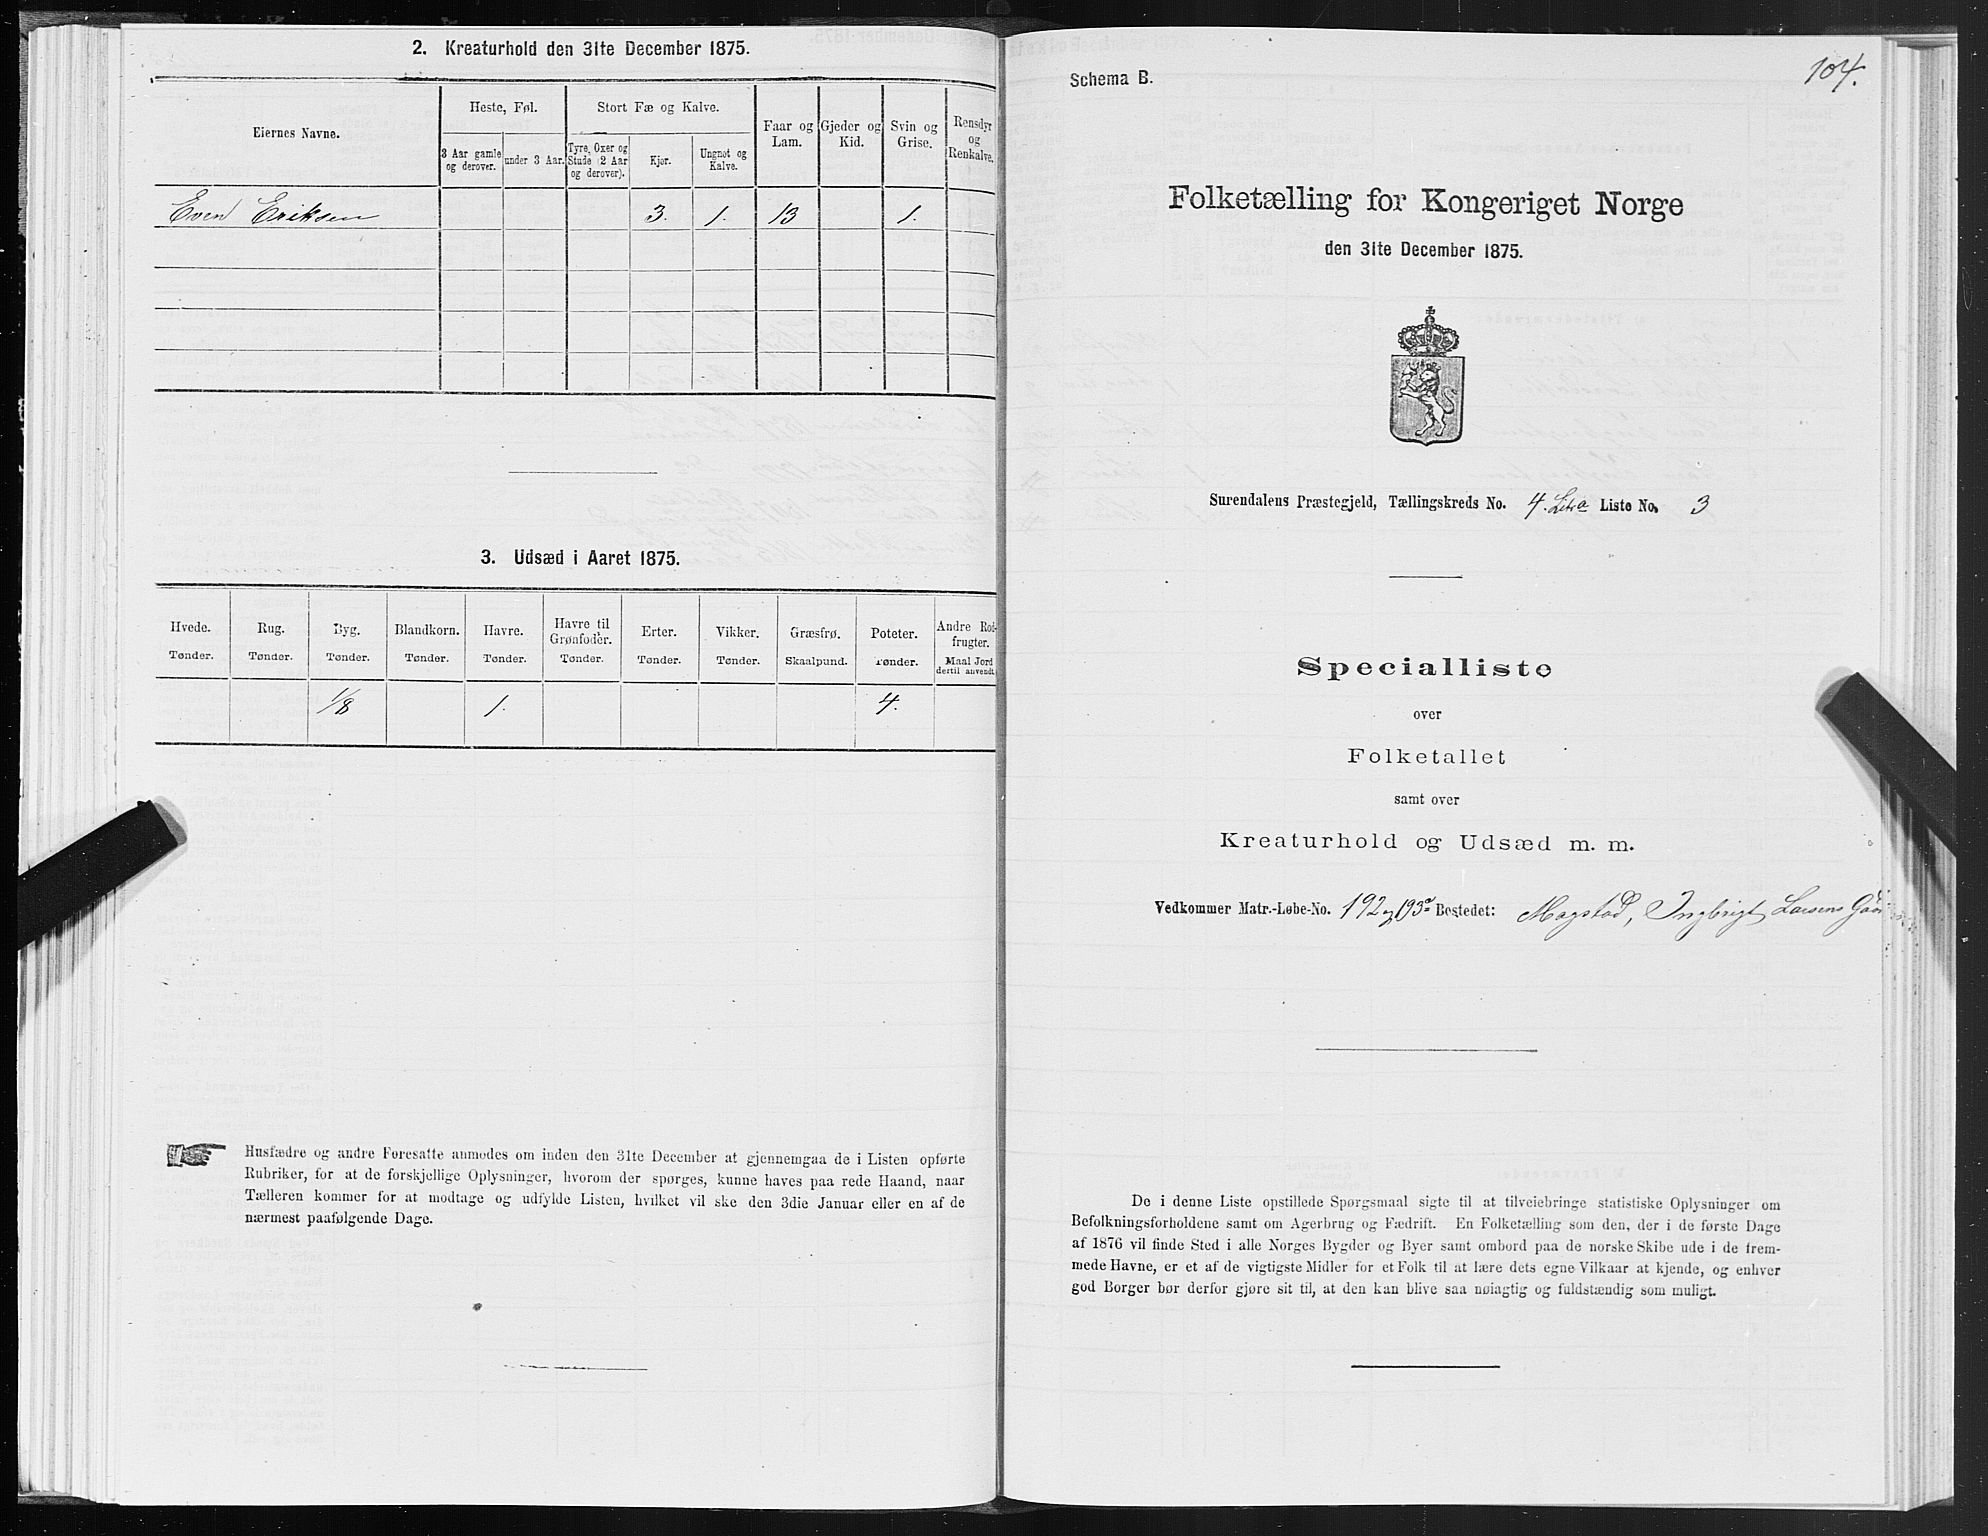 2. Kreaturhold den 31te December 1875.
Eiernes Navne.
Heste, Føl.
Stort Fæ og Kalve.
Faar og Lam.
Gjeder og Kid.
Svin og Grise.
Rensdyr og Renkalve.
3 Aar gamle og derover.
under 3 Aar.
Tyre, Oxer og Stude (2 Aar og derover).
Kjør.
Ungnøt og Kalve.
Even Eriksen 3. 1. 13 1.
3. Udsæd i Aaret 1875.
Hvede. Rug. Byg. Blandkorn. Havre. Havre til Grønfoder. Erter. Vikker. Græsfrø. Poteter. Andre Rodfrugter.
Tønder. Tønder. Tønder. Tønder. Tønder. Tønder. Tønder. Tønder. Skaalpund. Tønder. Maal Jord dertil anvendt.
1/8 1. 4.
Husfædre og andre Foresatte anmodes om inden den 31te December at gjennemgaa de i Listen opførte
Rubriker, for at de forskjellige Oplysninger, hvorom der spørges, kunne haves paa rede Haand, naar
Tælleren kommer for at modtage og udfylde Listen, hvilket vil ske den 3die Januar eller en af de
nærmest paafølgende Dage.
104.
Schema B.
Folketælling for Kongeriget Norge
den 31te December 1875.
Surendalens Præstegjeld, Tællingskreds No. 4. Litr a Liste No. 3
Specialliste
over
Folketallet
samt over
Kreaturhold og Udsæd m. m.
Vedkommer Matr.-Løbe-No. 192 og 193a Bostedet: Magstad, Ingbrigt Larsens
De i denne Liste opstillede Spørgsmaal sigte til at tilveiebringe statistiske Oplysninger om
Befolkningsforholdene samt om Agerbrug og Fædrift. En Folketælling som den, der i de første Dage
af 1876 vil finde Sted i alle Norges Bygder og Byer samt ombord paa de norske Skibe ude i de frem-
mede Havne, er et af de vigtigste Midler for et Folk til at lære dets egne Vilkaar at kjende, og enhver
god Borger bør derfor gjøre sit til, at den kan blive saa nøiagtig og fuldstændig som muligt.